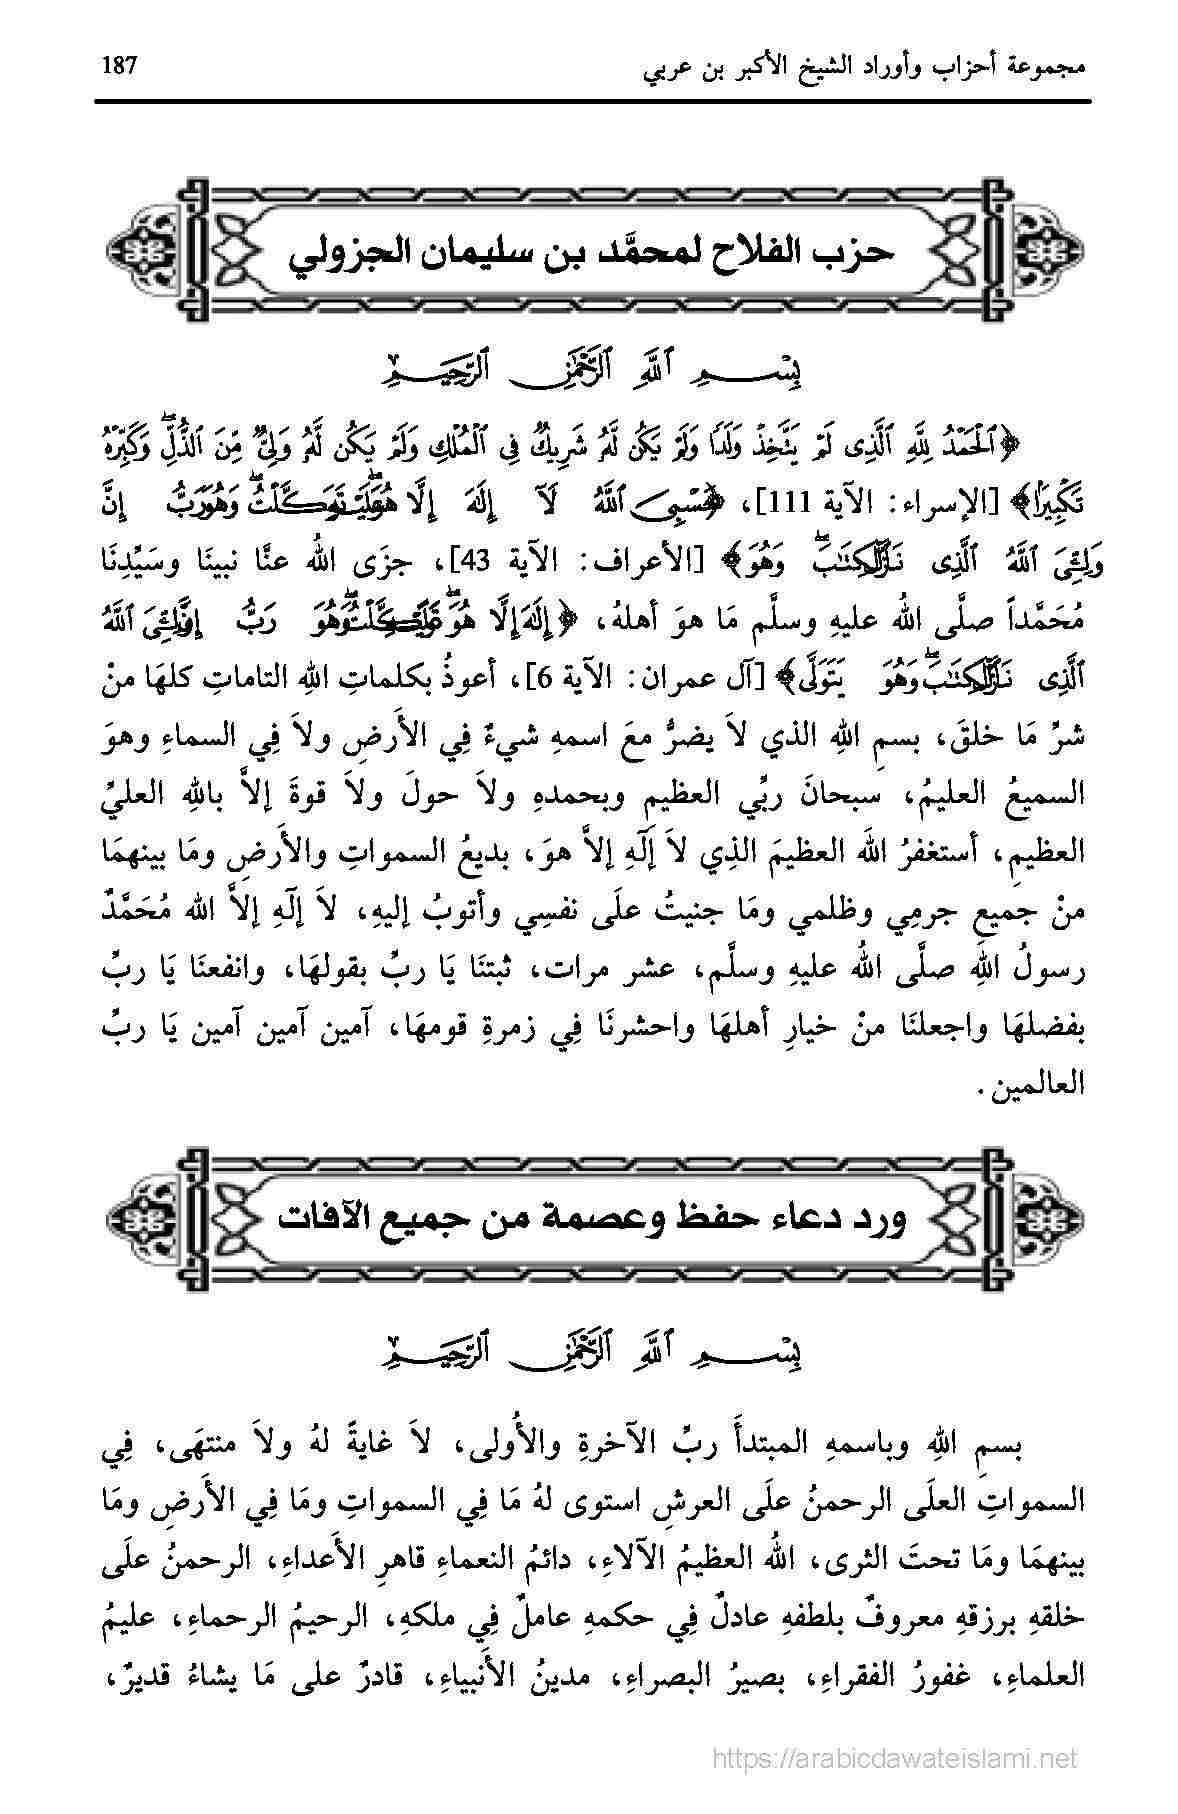 مجموعة أحزاب وأوراد الشيخ الأكبر بن عربي 187
حزب الفلاح لمحمَّد بن سليمان الجزولي
بِسْمِ ٱللَّهِ ٱلرَّحْمَٰنِ ٱلرَّحِيمِ
﴿ٱلْحَمْدُ لِلَّهِ ٱلَّذِى لَمْ يَتَّخِذْ وَلَدًا وَلَمْ يَكُن لَّهُۥ شَرِيكٌ فِى ٱلْمُلْكِ وَلَمْ يَكُن لَّهُۥ وَلِىٌّ مِّنَ ٱلذُّلِّ ۖ وَكَبِّرْهُ
تَكْبِيرًۢا﴾ [الإسراء: الآية 111]، ﴿حَسْبِىَ ٱللَّهُ لَآ إِلَٰهَ إِلَّا هُوَ ۖ عَلَيْهِ تَوَكَّلْتُ ۖ وَهُوَ رَبُّ إِنَّ
وَلِـِّۧىَ ٱللَّهُ ٱلَّذِى نَزَّلَ ٱلْكِتَٰبَ ۖ وَهُوَ﴾ [الأعراف: الآية 43]، جزَى اللهُ عنَّا نبينَا وسَيِّدِنَا
مُحَمَّداً صلَّى اللهُ عليهِ وسلَّم مَا هوَ أهلهُ، ﴿إِلَٰهَ إِلَّا هُوَ ۖ عَلَيْهِ تَوَكَّلْتُ ۖ وَهُوَ رَبُّ إِنَّ وَلِـِّۧىَ ٱللَّهُ
ٱلَّذِى نَزَّلَ ٱلْكِتَٰبَ ۖ وَهُوَ يَتَوَلَّى﴾ [آل عمران: الآية 6]، أعوذُ بكلماتِ اللهِ التاماتِ كلهَا منْ
شرِّ مَا خلقَ، بسمِ اللهِ الذي لاَ يضرُّ معَ اسمهِ شيءٌ فِي الأَرضِ ولاَ فِي السماءِ وهوَ
السميعُ العليمُ، سبحانَ ربِّي العظيم وبحمدهِ ولاَ حولَ ولاَ قوةَ إلاَّ باللهِ العليِّ
العظيمِ، أستغفرُ اللهَ العظيمَ الذِي لاَ إلَهَ إلاَّ هوَ، بديعُ السمواتِ والأَرضِ ومَا بينهمَا
منْ جميعِ جرمِي وظلمي ومَا جنيتُ علَى نفسِي وأتوبُ إليهِ، لاَ إلَهِ إلاَّ الله مُحَمَّدٌ
رسولُ اللهِ صلَّى اللهُ عليهِ وسلَّم، عشر مرات، ثبتنَا يَا ربِّ بقولهَا، وانفعنَا يَا ربِّ
بفضلهَا واجعلنَا منْ خيارِ أهلهَا واحشرنَا فِي زمرةِ قومهَا، آمين آمين آمين يَا ربِّ
العالمين.
ورد دعاء حفظ وعصمة من جميع الآفات
بِسْمِ ٱللَّهِ ٱلرَّحْمَٰنِ ٱلرَّحِيمِ
بسمِ اللهِ وباسمهِ المبتدأَ ربِّ الآخرةِ والأُولى، لاَ غايةً لهُ ولاَ منتهَى، فِي
السمواتِ العلَى الرحمنُ علَى العرشِ استوى لهُ مَا فِي السمواتِ ومَا فِي الأَرضِ ومَا
بينهمَا ومَا تحتَ الثرى، اللهُ العظيمُ الآلاءِ، دائمُ النعماءِ قاهرِ الأَعداءِ، الرحمنُ علَى
خلقهِ برزقهِ معروفٌ بلطفهِ عادلٌ فِي حكمهِ عاملٌ فِي ملكهِ، الرحيمُ الرحماءِ، عليمُ
العلماءِ، غفورُ الفقراءِ، بصيرُ البصراءِ، مدينُ الأَنبياءِ، قادرٌ على مَا يشاءُ قديرٌ،
https://arabicdawateislami.net